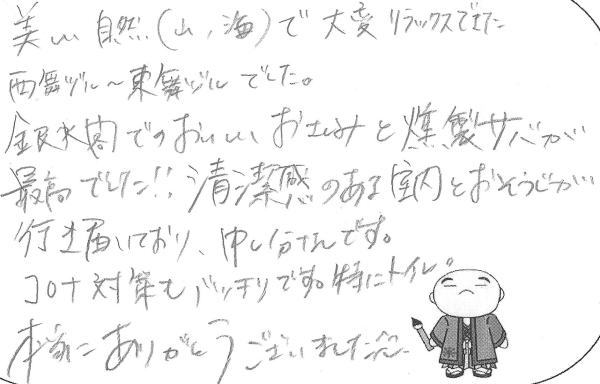 美しい自然(山、海)で大変リラックスできた
西舞ヅル～東舞ヅルでした。
銀水閣でのおいしいおさしみと燻製サバが
最高でした!!清潔感のある室内とおそうじが
行き届いており、申し分なしです。
コロナ対策もバッチリです。特にトイレ。
本当にありがとうございました